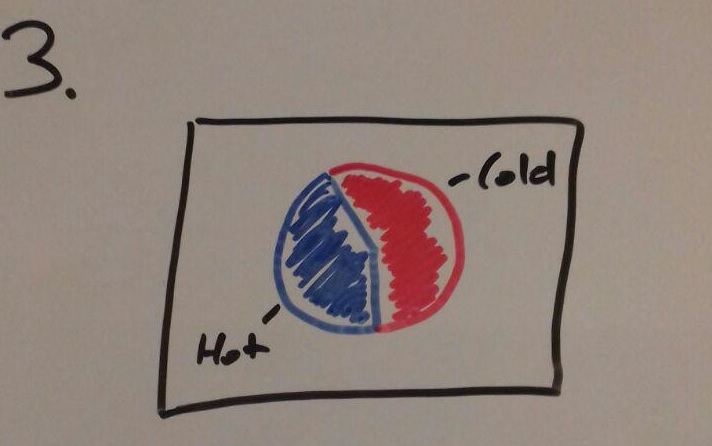 3.
Cold
Hot